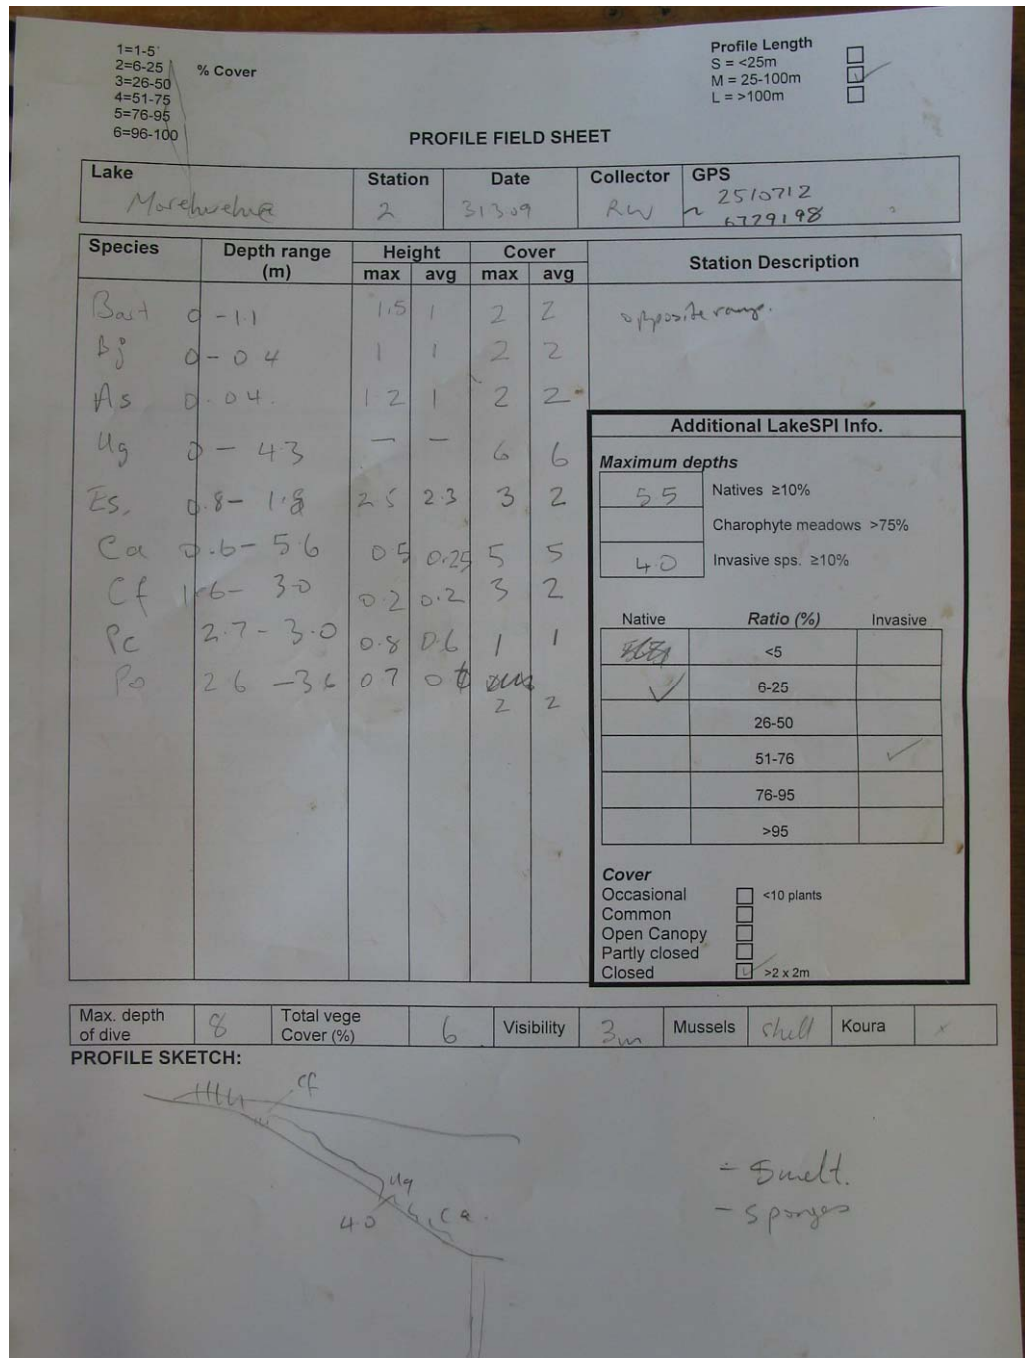 1=1-5
2=6-25
3=26-50
4=51-75
5=76-95
6=96-100
% Cover
Profile Length
S = <25m
M = 25-100m ✓
L = >100m
PROFILE FIELD SHEET
Lake Station Date Collector GPS
2 31309 RW 2510712
6729198
Species Depth range (m) Height max avg Cover max avg Station Description
0 - 1.1 1.5 1 2 2 opposite
Bj 0 - 0 4 1 1 2 2
As 0 - 0 4. 1 2 1 2 2
Ug 0 - 4.3 — — 6 6
Es. 0.8 - 1.8 2.5 2.3 3 2
Ca 0.6 - 5.6 0 5 0.25 5 5
Cf 1.6 - 3.0 0.2 0.2 3 2
Pc 2.7 - 3.0 0.8 0.6 1 1
Po 2 6 - 3.6 0 7 2 2
Additional LakeSPI Info.
Maximum depths
5 5 Natives ≥10%
Charophyte meadows >75%
4.0 Invasive sps. ≥10%
Native Ratio (%) Invasive
<5
✓ 6-25
26-50
51-76 ✓
76-95
>95
Cover
Occasional <10 plants
Common
Open Canopy
Partly closed
Closed ✓ >2 x 2m
Max. depth of dive 8 Total vege Cover (%) 6 Visibility 3m Mussels shell Koura x
PROFILE SKETCH:
Cf
Ug
4.0
Ca.
- Smelt.
- Sponges